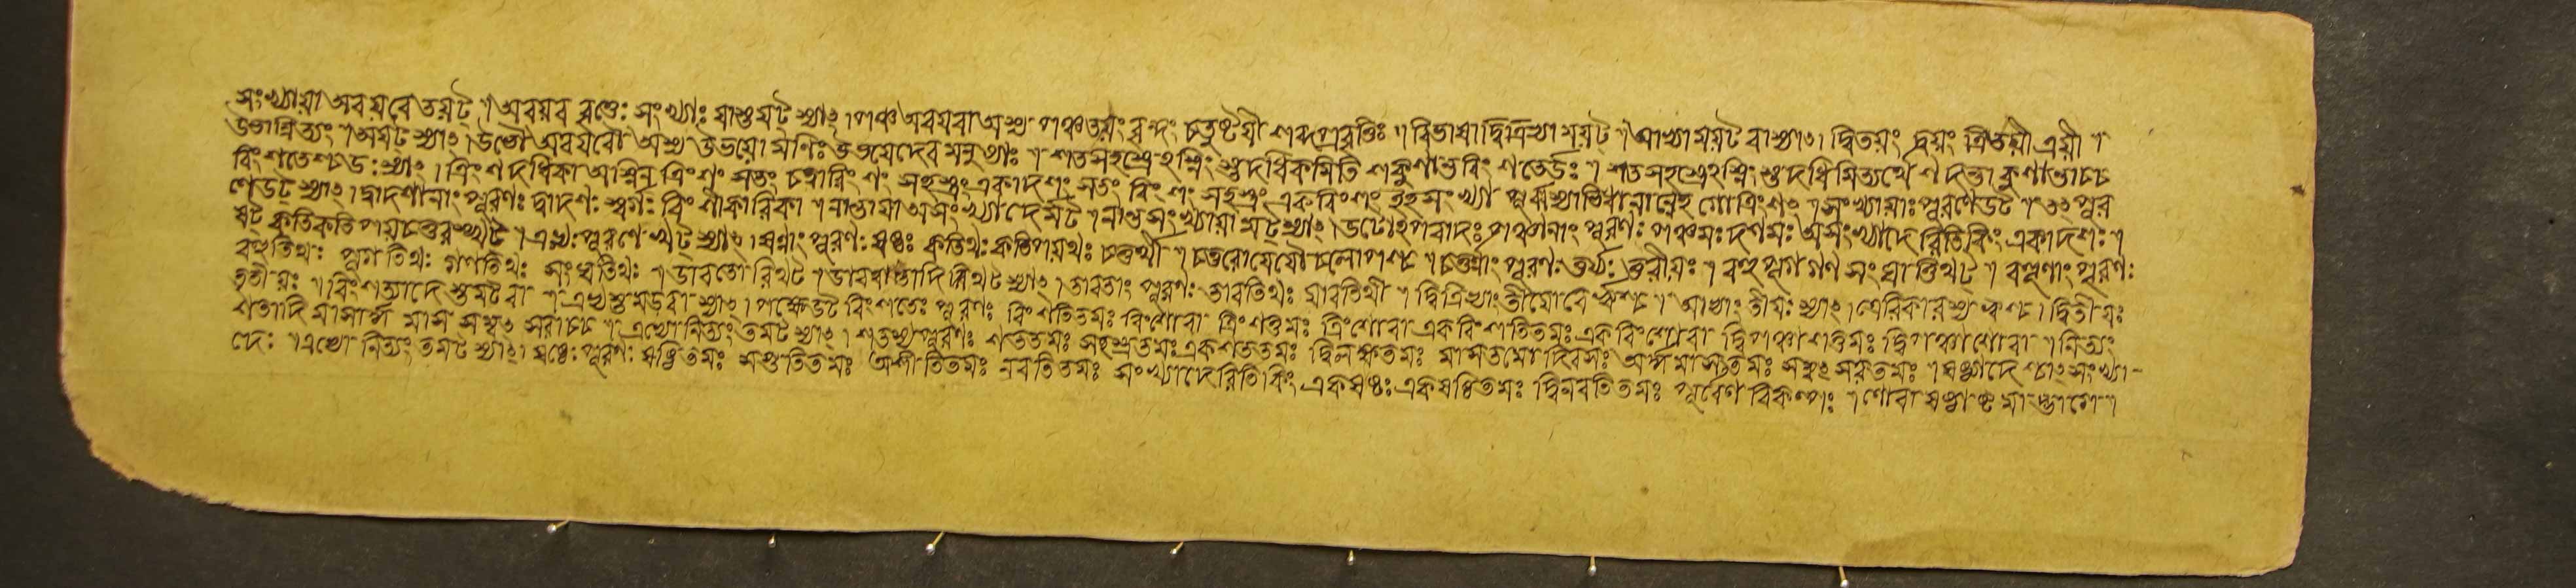 সংখ্যায়া অবয়বে তয়ট্ ৷৷ অবয়ব বৃত্তেঃ সংখ্যাঃ যাস্তয়ট্ স্যাৎ । পঞ্চ অবয়বা অস্য পঞ্চতয়ং বৃন্দং চতুষ্টয়ী শব্দপ্রবৃত্তিঃ ৷৷ বিভাষাদ্বিত্রিভ্যাময়ট্ ৷৷ আভ্যাময়ট বাস্যাৎ। দ্বিতয়ং দ্বয়ং ত্রিতয়ী ত্রয়ী ৷৷
উভান্নিত্যং ৷৷ অয়ট্ স্যাৎ। উভৌ অবয়বৌ অস্য উভয়ো মণিঃ উভয়েদেব মনুষ্যাঃ ৷৷ শতসহস্রেহস্মিং স্তদধিকমিতি শকুণান্তবিং শতের্ডঃ ৷৷ শতসহস্রেহস্মিং স্তদধিমিত্যর্থে শ দন্তা কুণান্তাচ্চ
বিংশতেশ্চ ডঃ স্যাৎ । ত্রিংশ দধিকা অস্মিন্ ত্রিং শং শতং চত্বারিং শং সহস্রং একাদশং শতং বিং শং সহস্রং একবিংশং ইহ সংখ্যা পূর্ব্বস্যাভিধানান্নেহ গোত্রিংশৎ ৷৷ সংখ্যায়াঃ পূরণেডট ৷৷ তৎ পূর
ণেডট্ স্যাৎ। দ্বাদশানাং পূরণঃ দ্বাদশঃ স্বর্গঃ বিং শীকারিকা ৷৷ নান্তায়া অসংখ্যাদের্মট ৷৷ নান্তসংখ্যায়া মট্ স্যাৎ। ডটোহপবাদঃ পঞ্চানাং পূরণঃ পঞ্চমঃ দশমঃ অসংখ্যাদে রিতিকিং একাদশঃ ৷৷
ষট্ কতিকতিপয়চতুরস্থট ৷৷ এভ্যঃ পূরণে থট্ স্যাৎ। ষণ্ণাং পূরণঃ ষষ্ঠঃ কতিথঃ কতিপয়থঃ চতুর্থী ৷৷ চতুরোযেযৌ চলোপশ্চ ৷৷ চতুর্ণাং পূরণঃ তুর্য্যঃ তুরীয়ঃ ৷৷ বহু পূগ গণ সংঘাত্তিথট্ ৷৷ বহূনাং পূরণঃ
বহুতিথঃ পূগতিথঃ গণতিথঃ সংঘতিথঃ ৷৷ ভাবতো রিথট ৷৷ ভাববান্তাদিরিথট স্যাৎ। তাবতাং পূরণঃ তাবতিথঃ যাবতিথী ৷৷ দ্বিত্রিভ্যাং তীয়োবে র্ঋশ্চ ৷৷ আভ্যাং তীয়ঃ স্যাৎ। ত্রেরিকারস্য ঋশ্চ। দ্বিতীয়ঃ
তৃতীয়ঃ ৷৷ বিংশত্যাদে স্তমট বা ৷৷ এভ্যস্তমড়বা স্যাৎ। পক্ষেডট বিংশতেঃ পূরণঃ বিংশতিতমঃ বিংশোবা ত্রিংশত্তমঃ ত্রিংশোবা একবিংশতিতমঃ একবিংশোবা দ্বিপঞ্চাশত্তমঃ দ্বিপঞ্চাশোবা ৷৷ নিত্যং
শতাদি মাসার্দ্ধ মাস সম্বৎ সরাচ্চ ৷৷ এভ্যো নিত্যং তমট স্যাৎ। শতস্য পূরণঃ শততমঃ সহস্রতমঃ একশততমঃ দ্বিলক্ষতমঃ মাসতমো দিবসঃ অর্দ্ধমাসতমঃ সম্বৎ সরতমঃ ৷৷ ষষ্ঠ্যাদে শ্চাৎ সংখ্যা-
দেঃ ৷৷ এভ্যো নিত্যং তমট স্যাৎ। ষষ্টেঃ পূরণঃ ষষ্টিতমঃ সপ্ততিতমঃ অশীতিতমঃ নবতিতমঃ সংখ্যাদেরিতি কিং একষষ্ঠঃ একষষ্টিতমঃ দ্বিনবতিতমঃ পূর্ব্বেণ বিকল্পঃ ৷৷ শোবা ষষ্ঠাষ্ট মাদ্ভাগে ৷৷